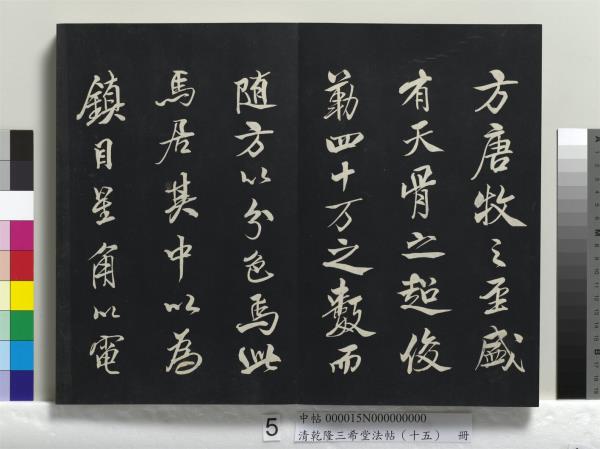 方唐牧之至盛
有天骨之超俊
勒四十万之數而
随方以分色焉此
馬居其中以為
鎮目星角以電
5
中帖 000015N000000000
清乾隆三希堂法帖（十五） 冊